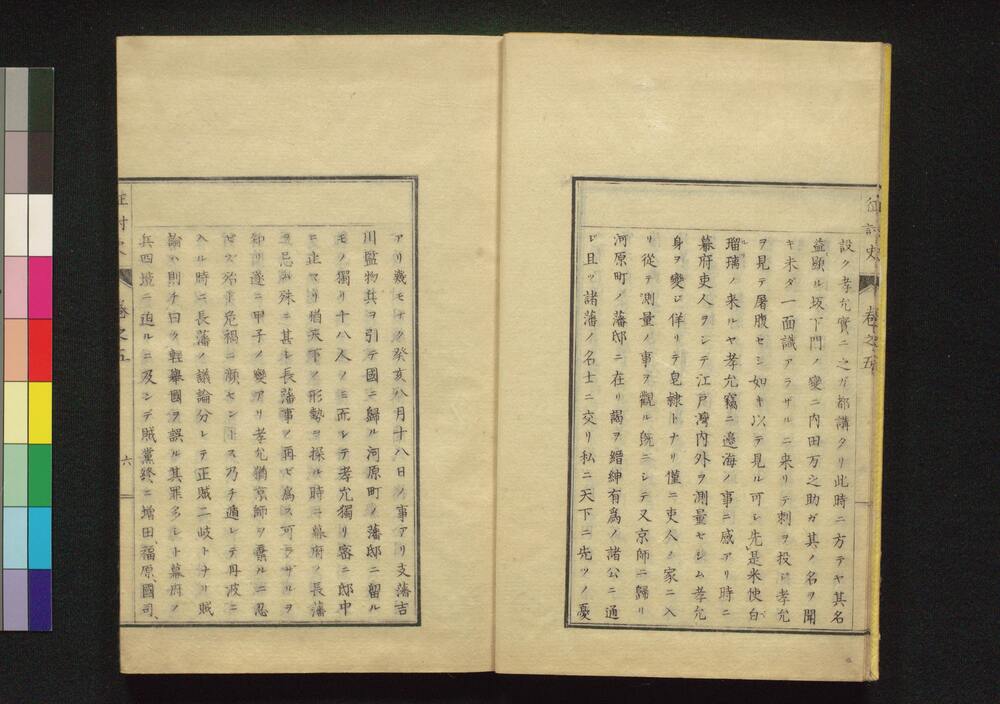 征討史
巻之五
設ク孝允實ニ之ガ都講タリ此時ニ方テヤ其名
益顯ル坂下門ノ變ニ内田万之助ガ其ノ名ヲ聞
キ未ダ一面識アラザルニ来リテ刺ヲ投ジ孝允
ヲ見テ屠腹セシ如キ以テ見ル可シ先是米使白
瑠璃ノ来ルヤ孝允竊ニ邊海ノ事ニ感アリ時ニ
幕府吏人ヲシテ江戸灣内外ヲ測量セシム孝允
身ヲ變ジ佯リテ皂隷トナリ僅ニ吏人ノ家ニ入
リ從テ測量ノ事ヲ觀ル既ニシテ又京師ニ歸リ
河原町ノ藩邸ニ在リ謁ヲ縉紳有爲ノ諸公ニ通
ジ且ツ諸藩ノ名士ニ交リ私ニ天下ニ先ツノ憂
アリ幾モナク癸亥八月十八日ノ事アリ支藩吉
川監物其ヲ引テ國ニ歸ル河原町ノ藩邸ニ留ル
モノ獨リ十八人ノミ而シテ孝允獨リ密ニ邸中
ニ止マリ猶天下ノ形勢ヲ探ル時ニ幕府ノ長藩
ヲ忌ム殊ニ甚シ長藩事ノ再ビ爲ス可ラザルヲ
知リ遂ニ甲子ノ變アリ孝允猶京師ヲ棄ルニ忍
ビズ殆ド危禍ニ瀕セントス乃チ遁レテ丹波ニ
入ル時ニ長藩ノ議論分レテ正賊二岐トナリ賊
論ハ則チ曰ク輕擧國ヲ誤ル其罪多シト幕府ノ
兵四境ニ迫ルニ及ンデ賊黨終ニ増田、福原、國司、
征討史
巻之五
六